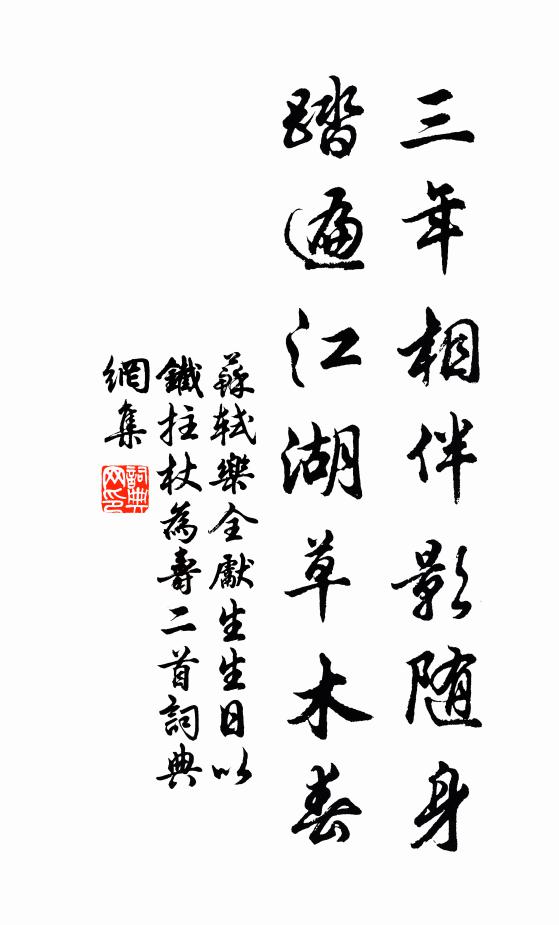 三年相伴影随身
踏遍江湖草木春
蘇軾樂全獻生生日以
鐵拄杖為壽二首詞典
網集
詞典
网印